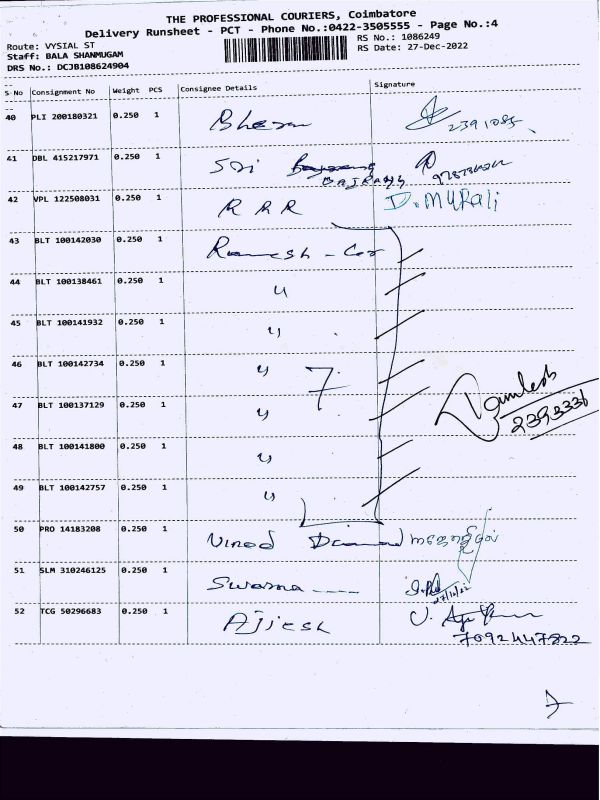 THE PROFESSIONAL COURIERS, Coimbatore
Delivery Runsheet - PCT - Phone No.:0422-3505555 - Page No.:4
Route: VYSIAL ST
RS No.: 1086249
Staff: BALA SHANMUGAM
RS Date: 27-Dec-2022
DRS No.: DCJB108624904
S No Consignment No Weight PCS Consignee Details Signature
40 PLI 200180321 0.250 1
41 DBL 415217971 0.250 1 Sri
BAJRANG
42 VPL 122508031 0.250 1 R R R D.MURali
43 BLT 100142030 0.250 1 Ramesh - Car
44 BLT 100138461 0.250 1 "
45 BLT 100141932 0.250 1 "
46 BLT 100142734 0.250 1 " 7
47 BLT 100137129 0.250 1 "
2393336
48 BLT 100141800 0.250 1 "
49 BLT 100142757 0.250 1 "
50 PRO 14183208 0.250 1 Vinod Diamond
51 SLM 310246125 0.250 1 Swarna ----
52 TCG 50296683 0.250 1 Ajiesh
7092447822